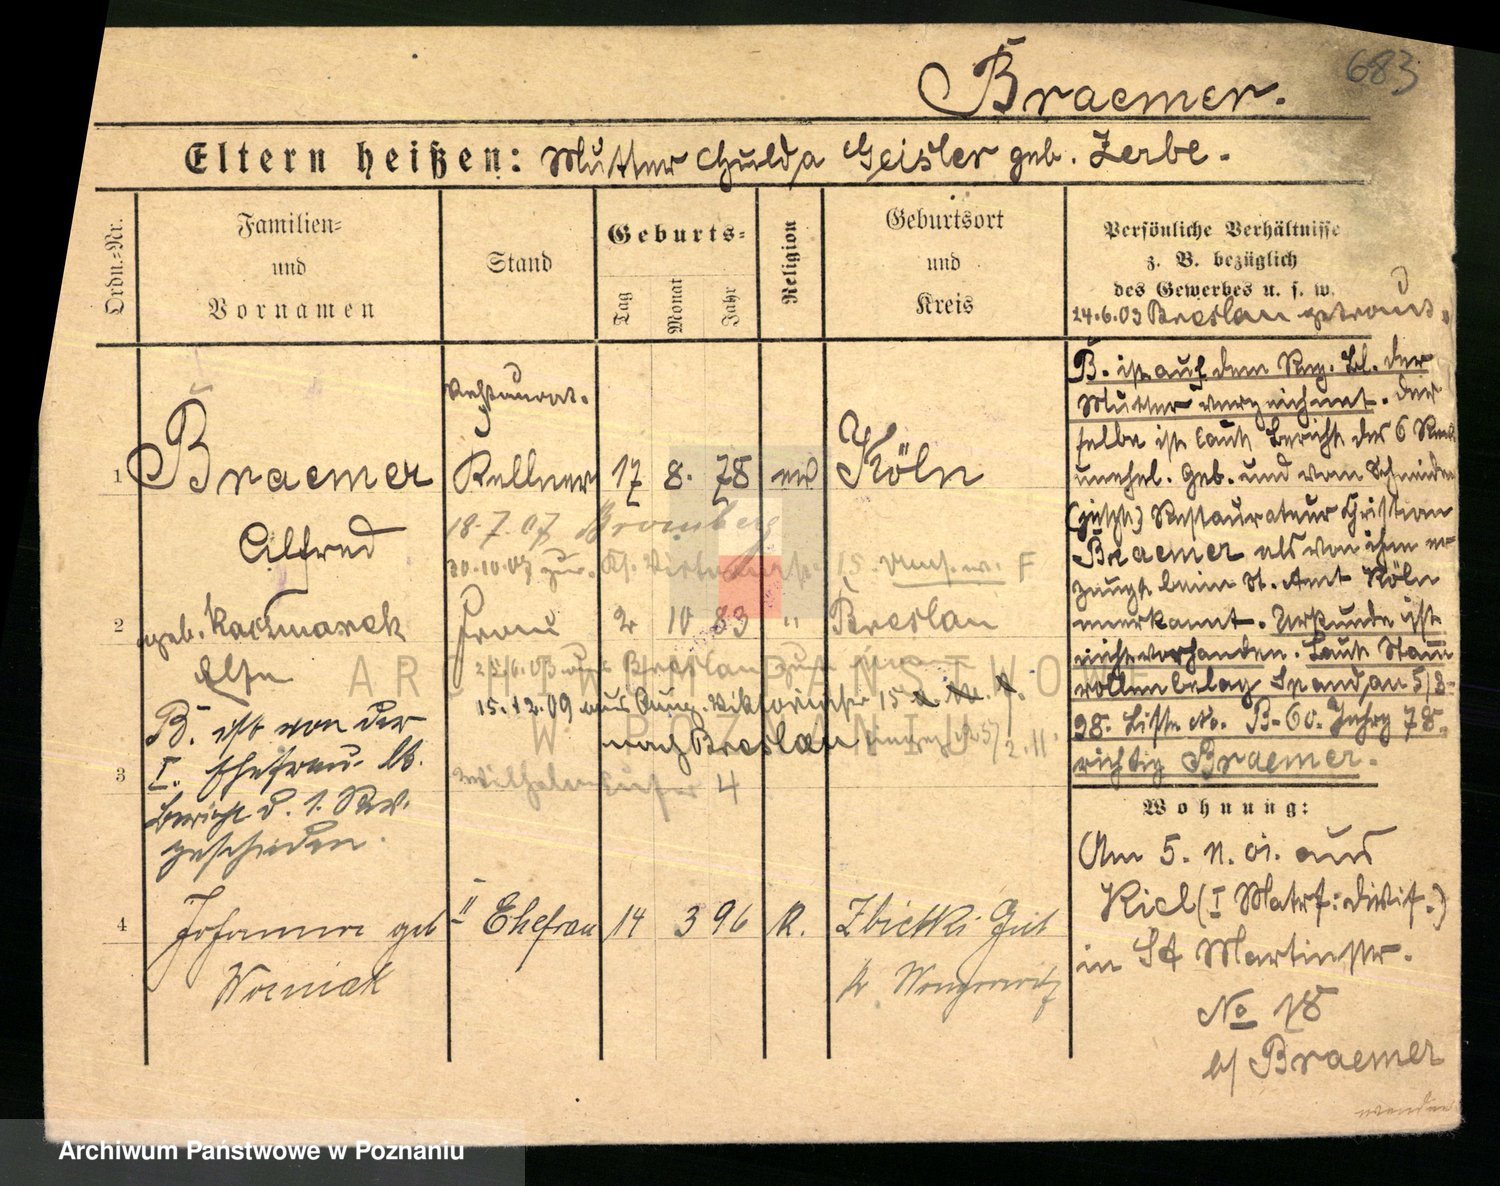 683
Braemer.
Eltern heißen: Mutter Hulda Geisler geb. Zerbe.
Ordn.-Nr.
Familien- und Vornamen
Stand
Geburts-
Tag
Monat
Jahr
Religion
Geburtsort und Kreis
Persönliche Verhältnisse
z. B. bezüglich
des Gewerbes u. s. w.
24.6.03 Breslau getraut.
Restaurat.
1 Braemer Kellner 17 8. 78 ev Köln
Alfred
18.7.07 Bromberg
30.10.07 zur.
2 geb. Kaczmarek Frau 2 10 83 " Breslau
Else
Breslau
15.12.09 aus Aug. Viktoriastr 15
nach Breslau
3 Wilhelm 4
B. ist von der
I. Ehefrau lt.
Bericht d. 1. Rev.
geschieden.
4 Johanna geb II Ehefrau 14 3 96 K. Zbietka Gut
Worniak Kr. Wongrowitz
B. ist auf dem Reg. Bl. der
Mutter verzeichnet. Der
selbe ist laut Bericht des 6 Rev.
unehel. geb. und vom Schneider
(jetzt) Restaurateur Christian
Braemer als von ihm er
zeugt beim St. Amt Köln
anerkannt. Urkunde ist
nicht vorhanden. Laut Stamm
rollenbelag Spandau 5/8
98. Liste No. B-60. Jahrg 78.
richtig Braemer.
Wohnung:
Am 5. 11. 01. aus
Kiel (I Matr: divis.)
in St Martinstr.
No 18
b/ Braemer
wenden
ARCHIWUM PAŃSTWOWE
W POZNANIU
Archiwum Państwowe w Poznaniu